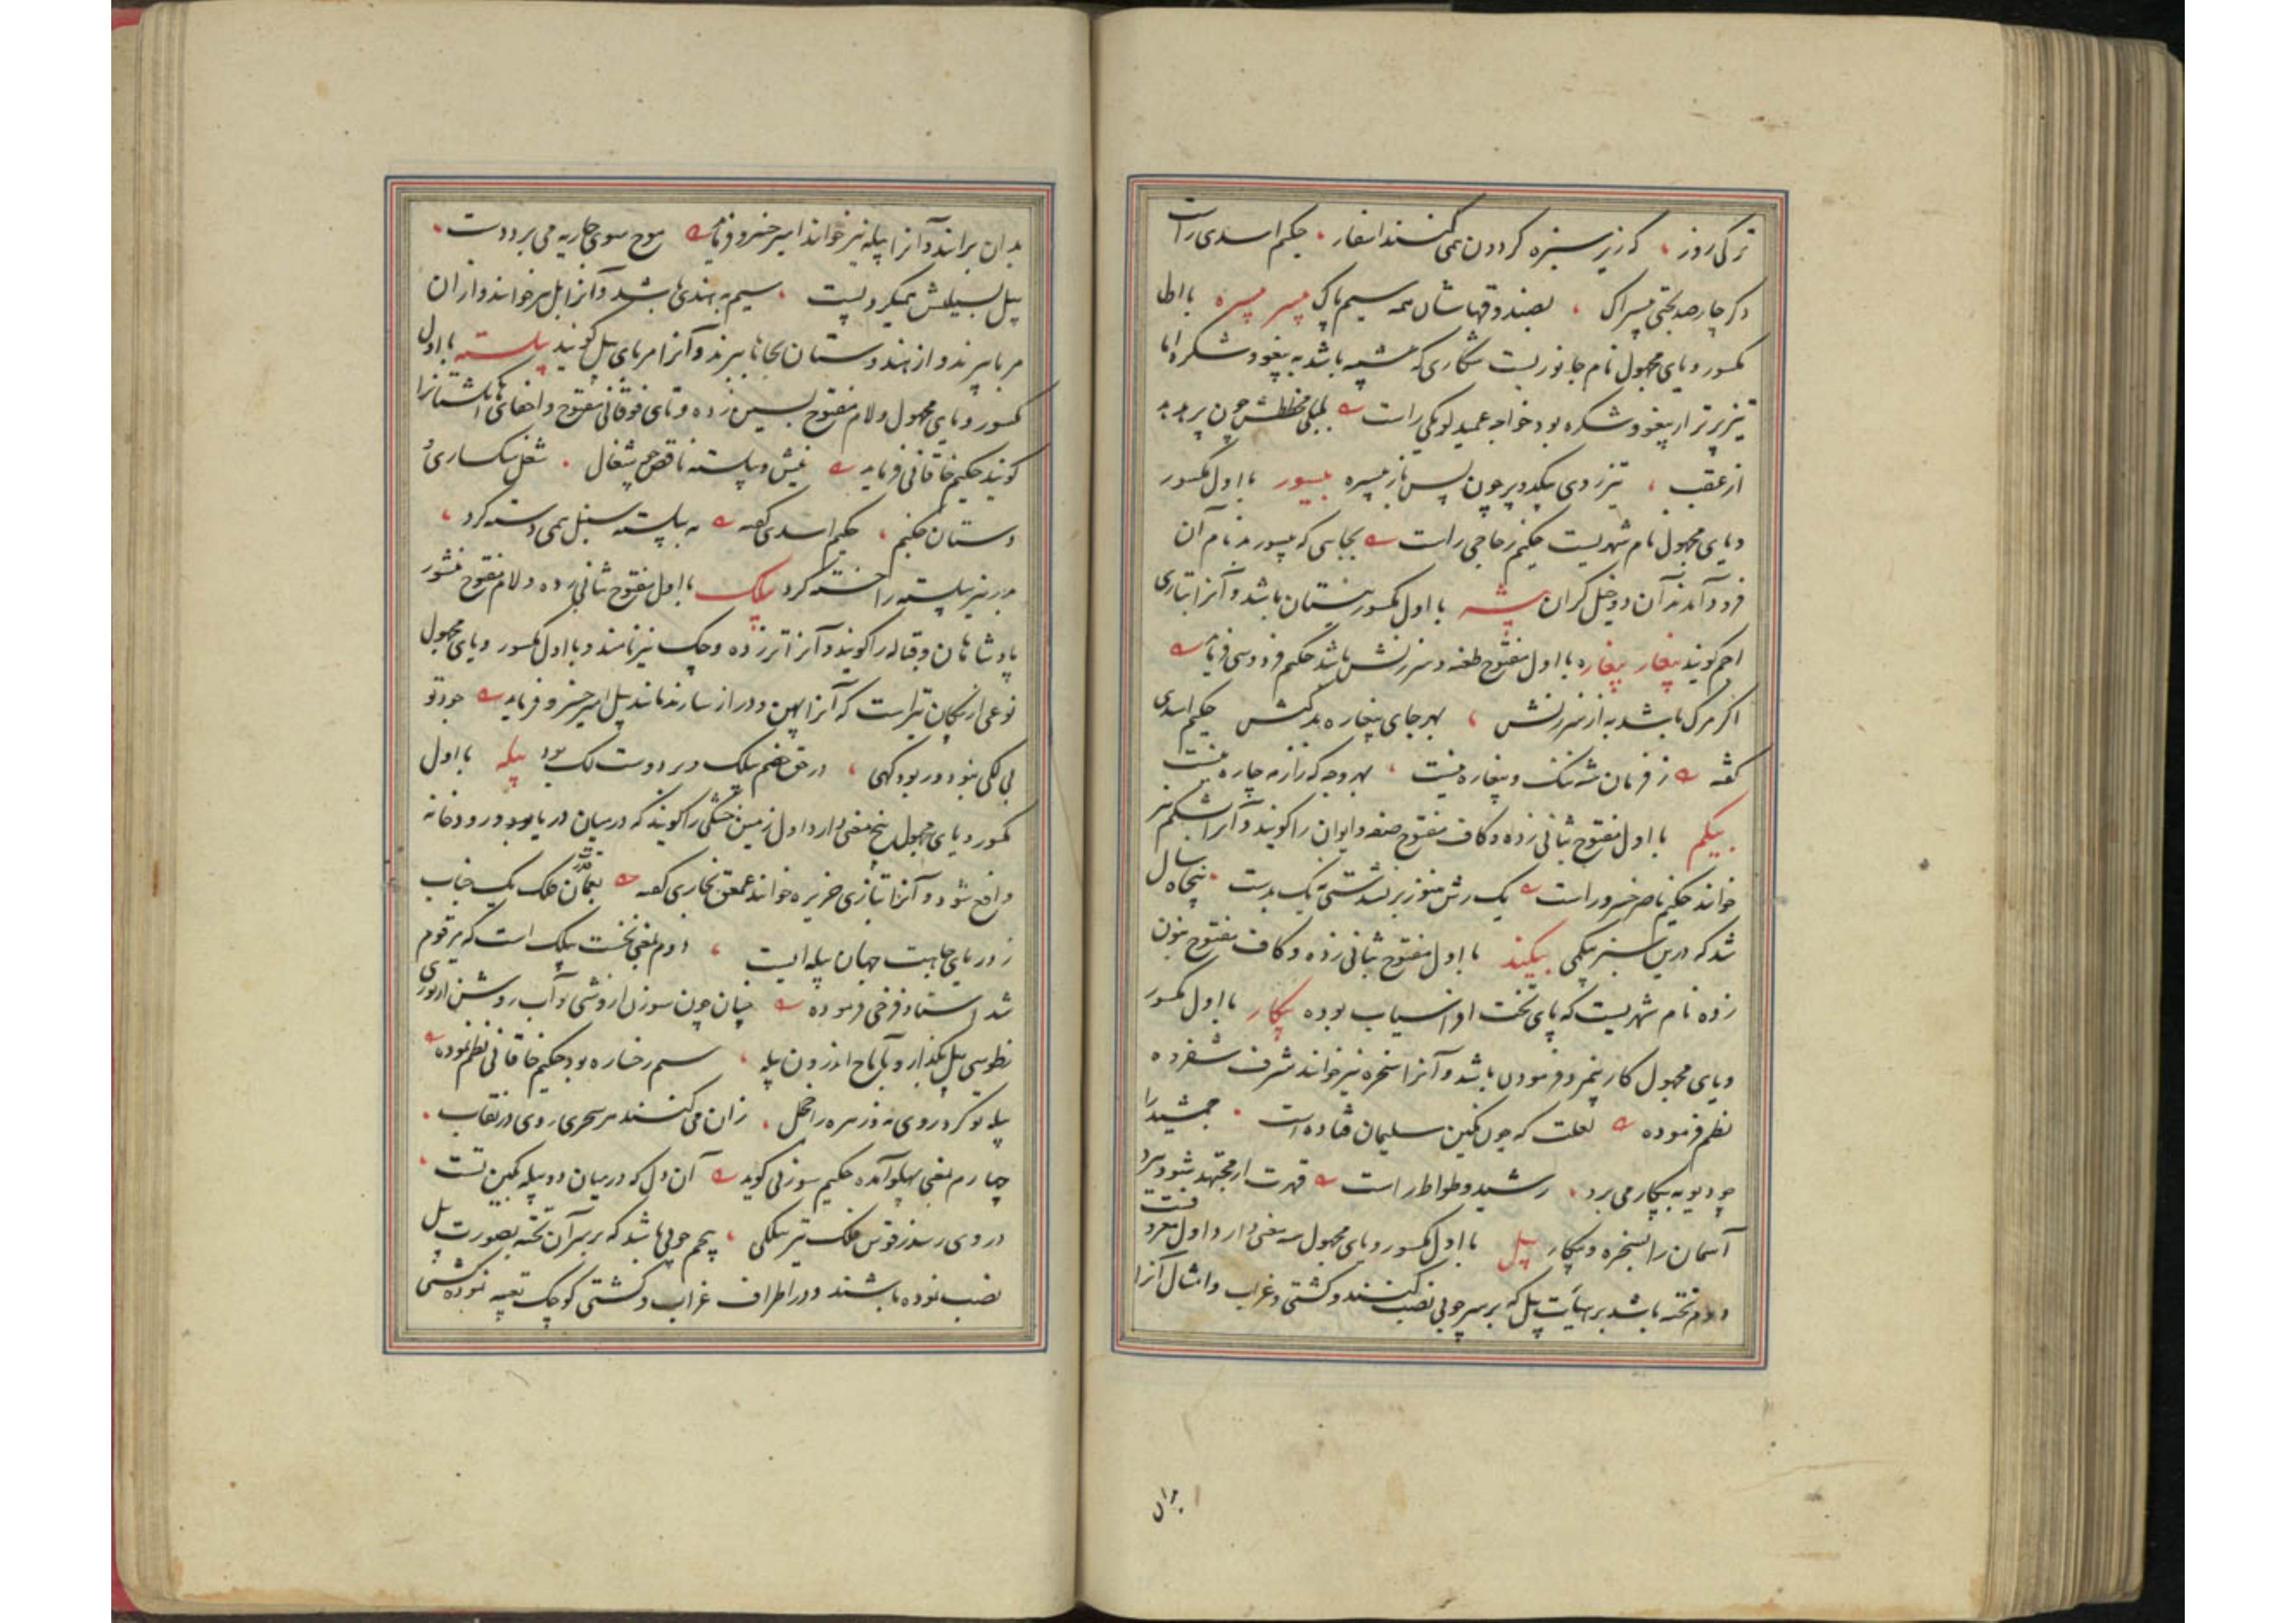 ترکی روز ، که زیر سبزه گردون همی کنند اسفار ، حکیم اسدی راست
دگر چارصد بختی بیسراک ، بصندوقهاشان همه سیم پاک بیسر بیسره با اول
مکسور و یای مجهول نام جانوریست شکاری که شبیه باشد به پیغو و شکره اما
تیزپرتر از پیغو و شکره بود خواجه عمید لویکی راست چون پرید
از عقب ، تیز زدی یکدو پر چون پس باز بیسره بیسور با اول مکسور
و یای مجهول نام شهریست حکیم زجاجی راست بجایی که بیسور بد نام آن
فرود آمدند آن دو خیل گران بیشه با اول مکسور نیستان باشد و آنرا بتازی
اجم گویند بیغار بیغاره با اول مفتوح طعنه و سرزنش باشد حکیم فردوسی فرماید
اگر مرگ باشد به از سرزنش ، بهر جای بیغاره بدکنش حکیم اسدی
گفته ز فرمان شه ننگ و بیغاره نیست ، بهر وجه که زو چاره نیست
بیکم با اول مفتوح بثانی زده و کاف مفتوح صفه و ایوان را گویند و آنرا بشکم نیز
خوانند حکیم ناصر خسرو راست یک رش هنوز بر نشدستی نه یک بدست ، پنجاه سال
شد که درین سبز بیکمی بیکند با اول مفتوح بثانی زده و کاف مفتوح بنون
زده نام شهریست که پای تخت افراسیاب بوده بیکار با اول مکسور
و یای مجهول کار بیمزد فرمودن باشد و آنرا سخره نیز خوانند شرف شفروه
نظم فرموده لعلت که چون نگین سلیمان فتاده است ، جمشید را
چو دیو به بیکار می برد ، رشید وطواط راست قهرت ار مجتهد شود ببرد
آسمان را بسخره و بیکار بیل با اول مکسور و یای مجهول سه معنی دارد اول معروفست
دوم تخته باشد بر هیأت بیل که بر سر چوبی نصب کنند و کشتی و غراب و امثال آنرا
بدان
بدان برانند و آنرا بیله نیز خوانند امیر خسرو فرماید موج سوی جاریه می برد دست ،
بیل بسیلیش همیکرد پست ، سیم به هندی باشد و آنرا بل هم خوانند و از آن
مربا پرند و از هندوستان بجاها ببرند و آنرا مربای بیل گویند بیلسته با اول
مکسور و یای مجهول و لام مفتوح بسین زده و تای فوقانی مفتوح و اخفای ها انگشتانرا
گویند حکیم خاقانی فرماید نیش و بیلسته ناقص چو شغال ، شغل سکساری و
دستان چکنم ، حکیم اسدی گفته به بیلسته سنبل همی دسته کرد ،
بدر نیز بیلسته را خسته کرد بیلک با اول مفتوح بثانی زده و لام مفتوح منشور
پادشاهان و قباله را گویند و آنرا ترزده و چک نیز نامند و با اول مکسور و یای مجهول
نوعی از پیکان تیر است که آنرا پهن و دراز سازند مانند بیل امیر خسرو فرماید جود تو
بی لکی نبود و ر بود گهی ، در حق خصم بیلک و بر دوست لک بود بیله با اول
مکسور و یای مجهول پنج معنی دارد اول زمین خشکی را گویند که در میان دریا و رودخانه
واقع شود و آنرا بتازی جزیره خوانند عمعق بخاری گفته بعمان فلک یک حباب
ز دریای جاهت جهان بیله ایست ، دوم بمعنی نخست بیلک است که مرقوم
شد استاد فرخی فرموده چنان چون سوزن از وشی و آب روشن از توزی
بطوسی بیل بگذارد و بآماج اندرون بیله ، سیم رخساره بود حکیم خاقانی نظم نموده
بیله تو کرد روی نه ز زهره را خجل ، زان می کنند هر سحری روی در نقاب ،
چهارم بمعنی پهلو آمده حکیم سوزنی گوید آن دل که در میان دو بیله بکین تست ،
در وی رسد ز قوس فلک تیر بیلکی ، پنجم چوبی باشد که بر سر آن تخته بصورت بیل
نصب نموده باشند و در اطراف غراب و کشتی کوچک تعبیه نموده کشتی